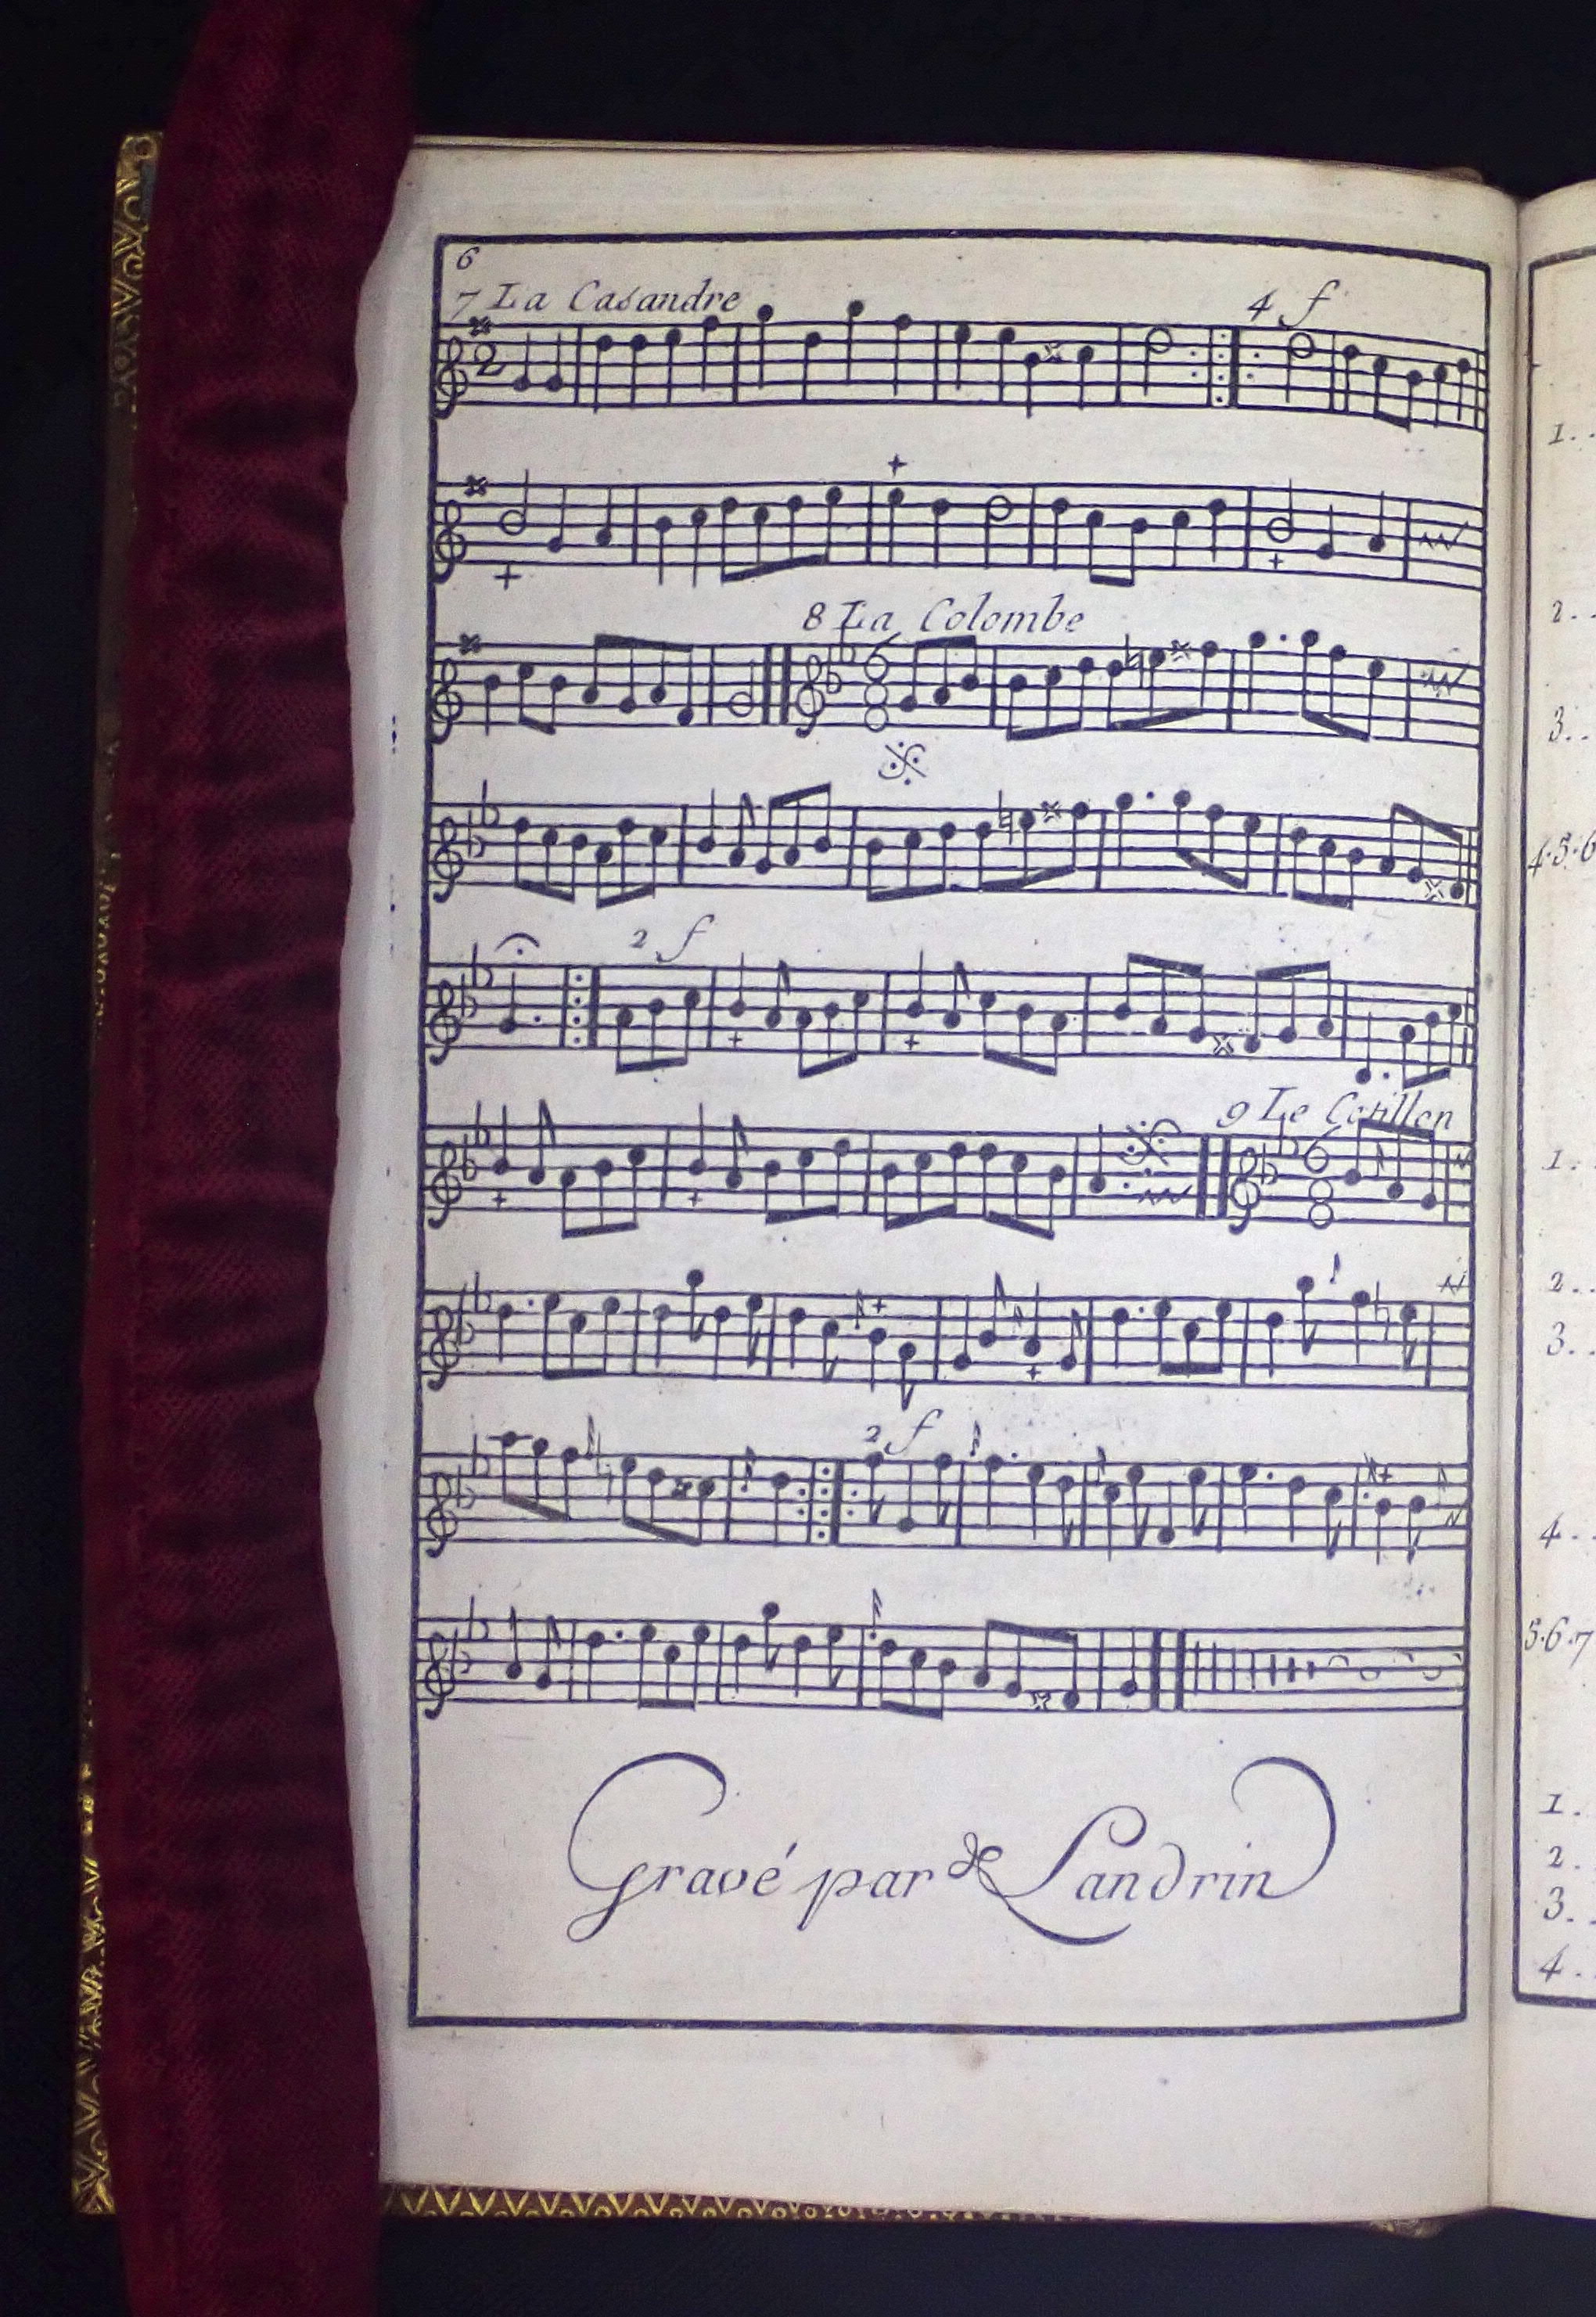 6
7 La Casandre
4 f
8 La Colombe
2 f
9 Le Cotillon
2 f
Gravé par de Landrin
1..
2..
3..
4.5.6
1.
2..
3..
4..
5.6.7
1.
2.
3.
4.